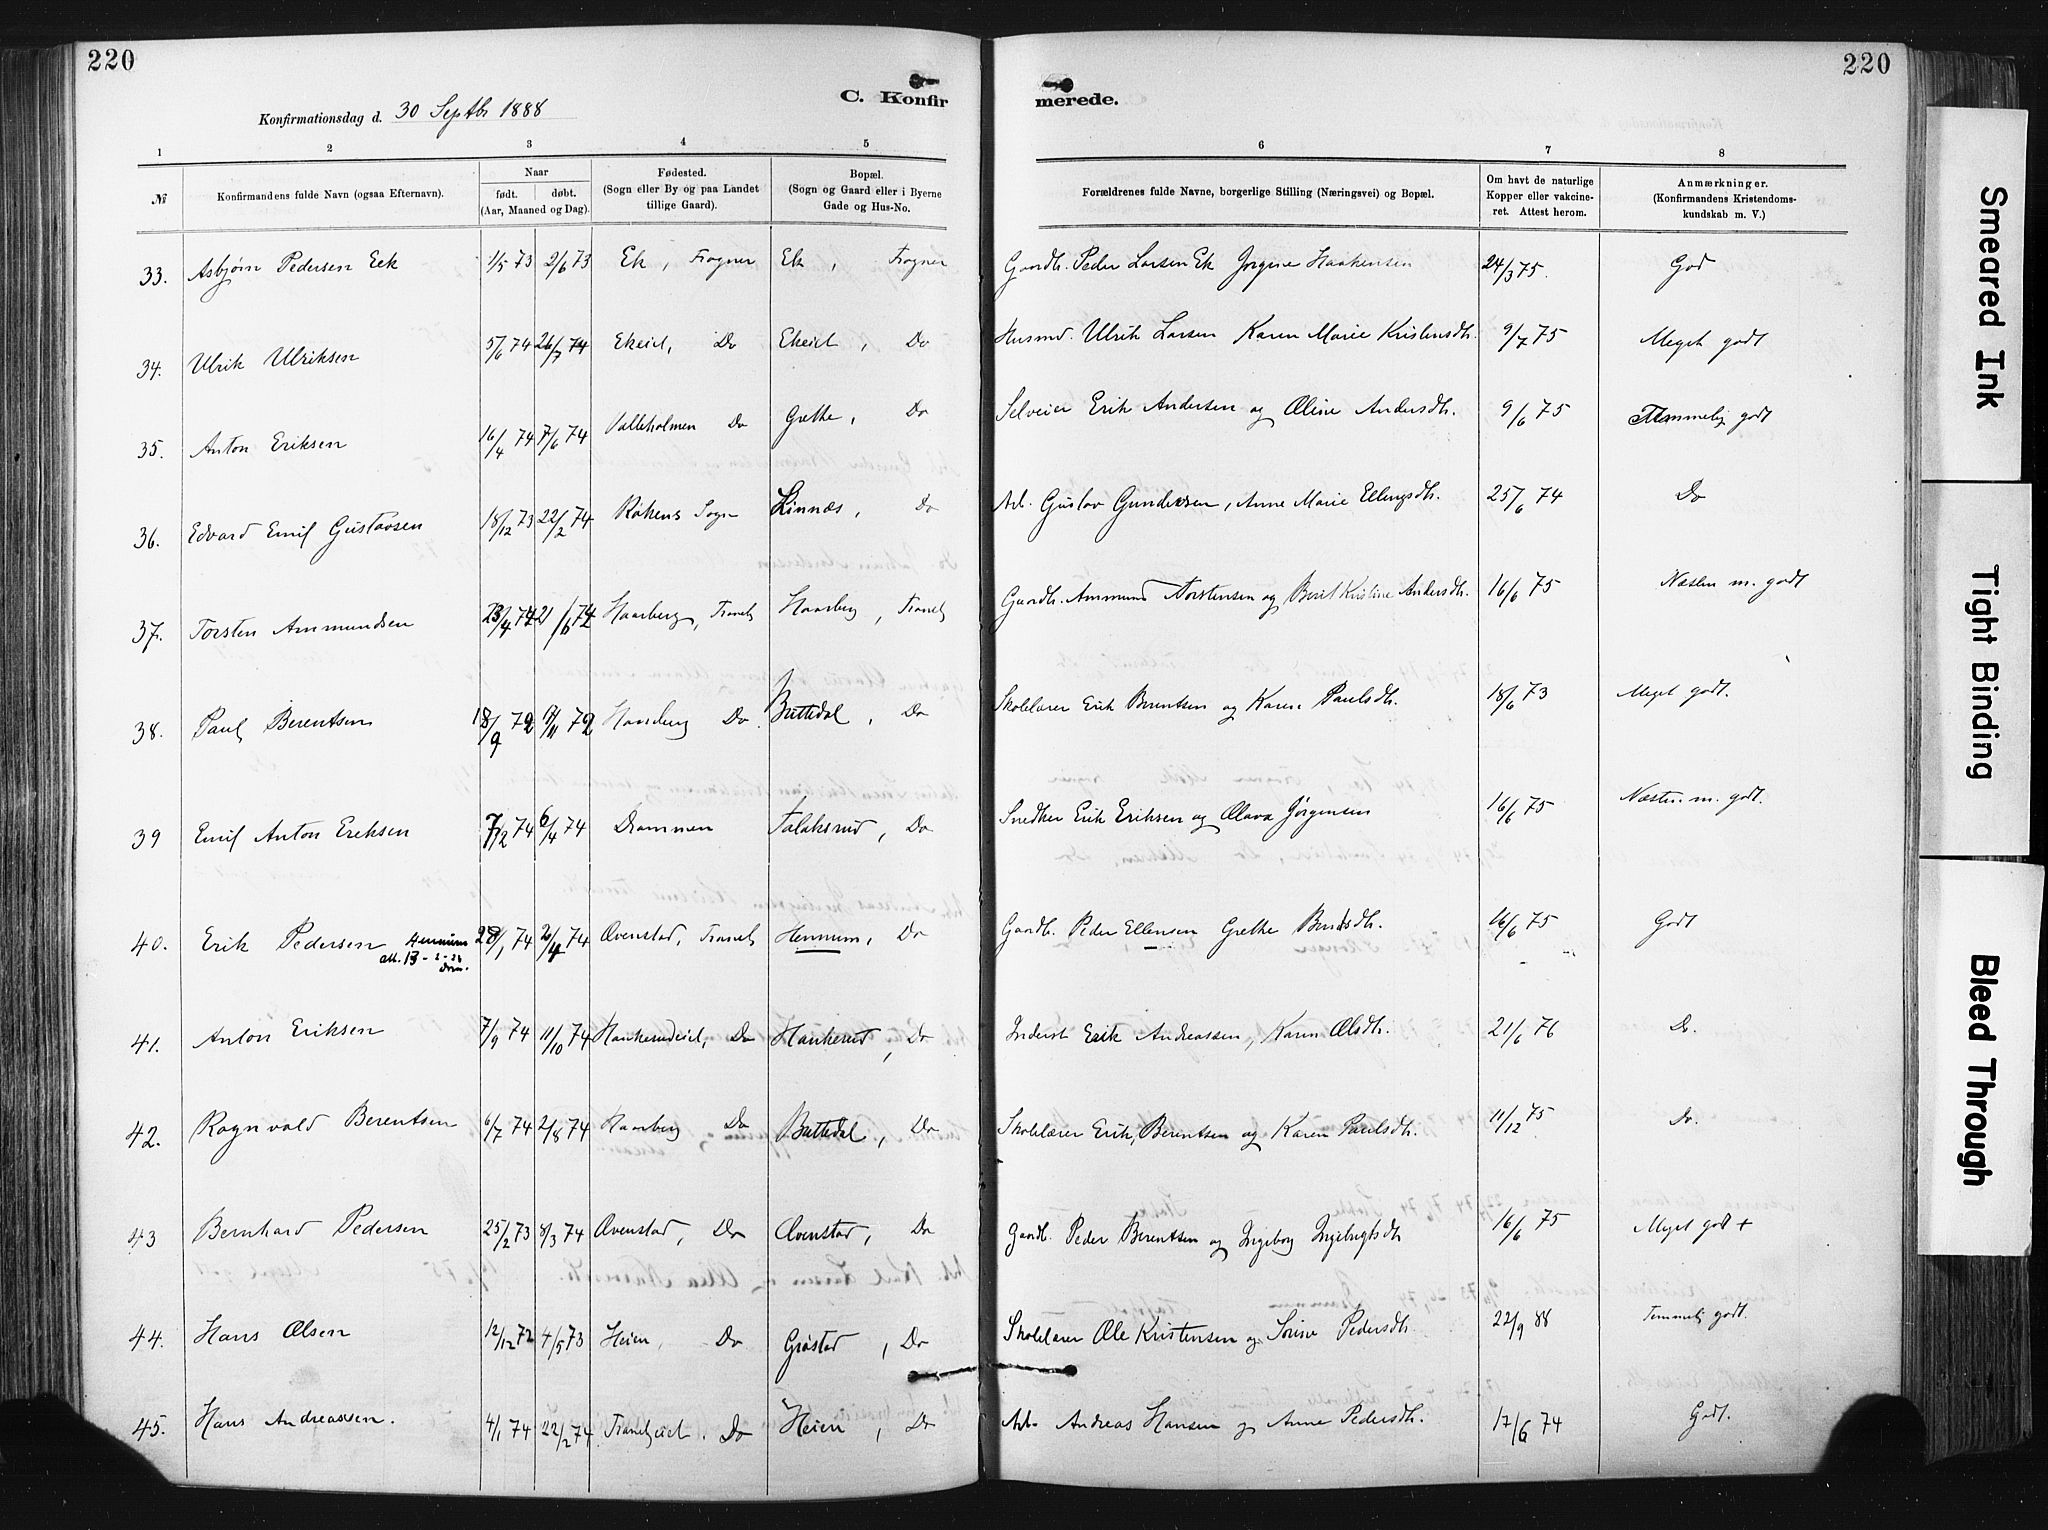 220
220
C. Konfirmerede.
Konfirmationsdag d. 30 Septbr 1888
1 2 3 4 5 6 7 8
№ Konfirmandens fulde Navn (ogsaa Efternavn). Naar født. døbt. (Aar, Maaned og Dag). Fødested. (Sogn eller By og paa Landet tillige Gaard). Bopæl. (Sogn og Gaard eller i Byerne Gade og Hus-No. Forældrenes fulde Navne, borgerlige Stilling (Næringsvei) og Bopæl. Om havt de naturlige Kopper eller vakcineret. Attest herom. Anmærkninger. (Konfirmandens Kristendomskundskab m. V.)
33. Asbjørn Pedersen Eek 1/5 73 2/6 73 Ek, Frogner Ek, Frogner Gaardb. Peder Larsen Ek Jørgine Haakensen 24/3 75. God
34. Ulrik Ulriksen 5/6 74 26/7 74 Ekeiet, Do Ekeiet, Do Husmd. Ulrik Larsen Karen Marie Kristensdt. 9/7 75 Meget godt
35. Anton Eriksen 16/4 74 7/6 74 Valleholmen Do Grette, Do Selveier Erik Andersen og Oline Andersdt. 9/6 75 Temmelig godt
36. Edvard Emil Gustavsen 18/12 73 22/2 74 Røkens Sogn Linnæs, Do Arb. Gustav Gundersen, Anne Marie Ellingsdt. 25/6 74 Do
37. Torsten Ammundsen 23/4 72 2/6 72 Haarberg, Tranby Haarberg, Tranby Gaardb. Ammund Torstensen og Berit Kristine Andersdt. 16/6 75 Næsten m. godt
38. Paul Berentsen 18/9 72 17/11 72 Haarberg Do Buttedal, Do Skolelærer Erik Berentsen og Karen Paulsdt. 18/6 73 Meget godt.
39 Emil Anton Eriksen 7/12 74 6/4 74 Drammen Talaksrud, Do Snedker Erik Eriksen og Olava Jørgensen 16/6 75 Næsten m. godt.
40. Erik Pedersen Hennum 28/1 74 2/4 74 Ovenstad, Tranby Hennum, Do Gaardb. Peder Ellensen Grethe Berntsdt. 16/6 75 Godt
41. Anton Eriksen 7/9 74 11/10 74 Hankerudeiet, Do Hankerud, Do Inderst Erik Andreassen, Karen Olsdt. 21/6 76 Do.
42. Ragnvald Berentsen 6/7 74 2/8 74 Haarberg Do Buttedal, Do Skolelærer Erik Berentsen og Karen Paulsdt. 11/12 75 Do.
43 Bernhard Pedersen 25/2 73 8/3 74 Ovenstad, Do Ovenstad, Do Gaardb. Peder Berentsen og Ingeborg Ingebrigtsdt 16/6 75 Meget godt +
44. Hans Olsen 12/12 72 4/5 73 Heien, Do Gjøstad, Do Skolelærer Ole Kristensen og Sørine Pedersdt. 22/9 88 Temmelig godt.
45. Hans Andreassen. 4/1 74 22/2 74 Tranbyeiet. Do Heien, Do Arb. Andreas Hansen og Anne Pedersdt. 17/6 74 Godt.
Smeared Ink
Tight Binding
Bleed Through